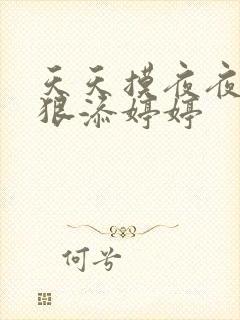 天天摸夜夜
狠添婷婷
何兮